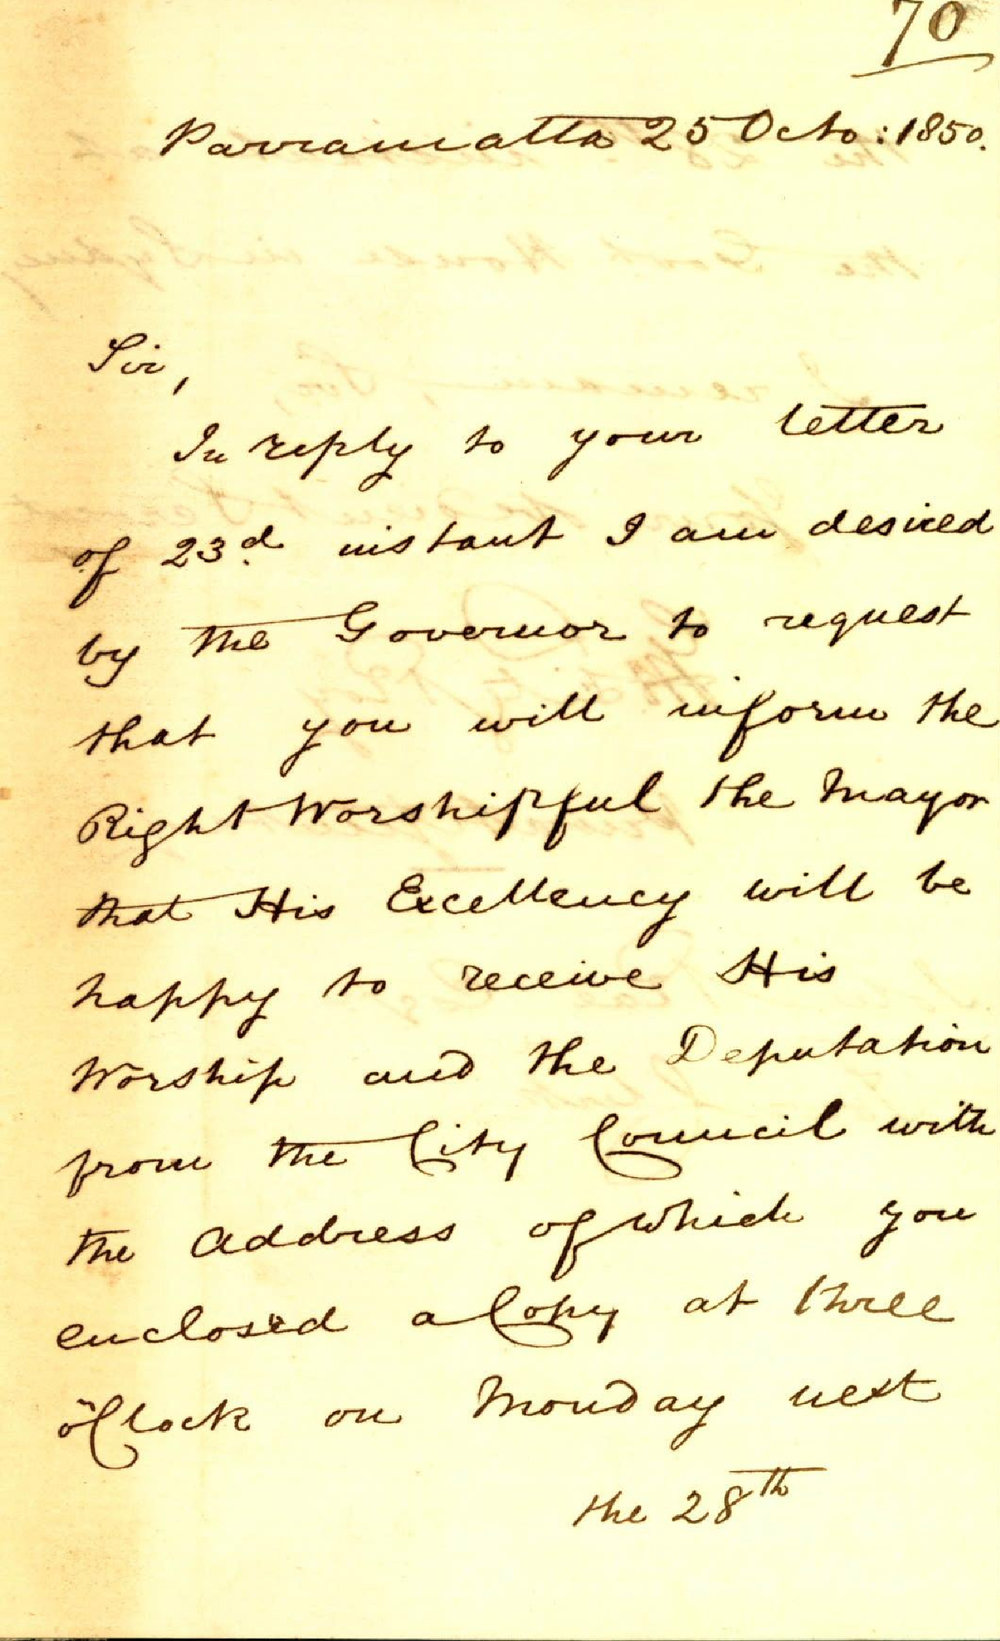 70
Parramatta 25 Octo: 1850.
Sir,
In reply to your letter
of 23d. instant I am desired
by the Governor to request
that you will inform the
Right Worshipful the Mayor
that His Excellency will be
happy to receive His
Worship and the Deputation
from the City Council with
the Address of which you
enclosed a Copy at three
o'Clock on Monday next
the 28th